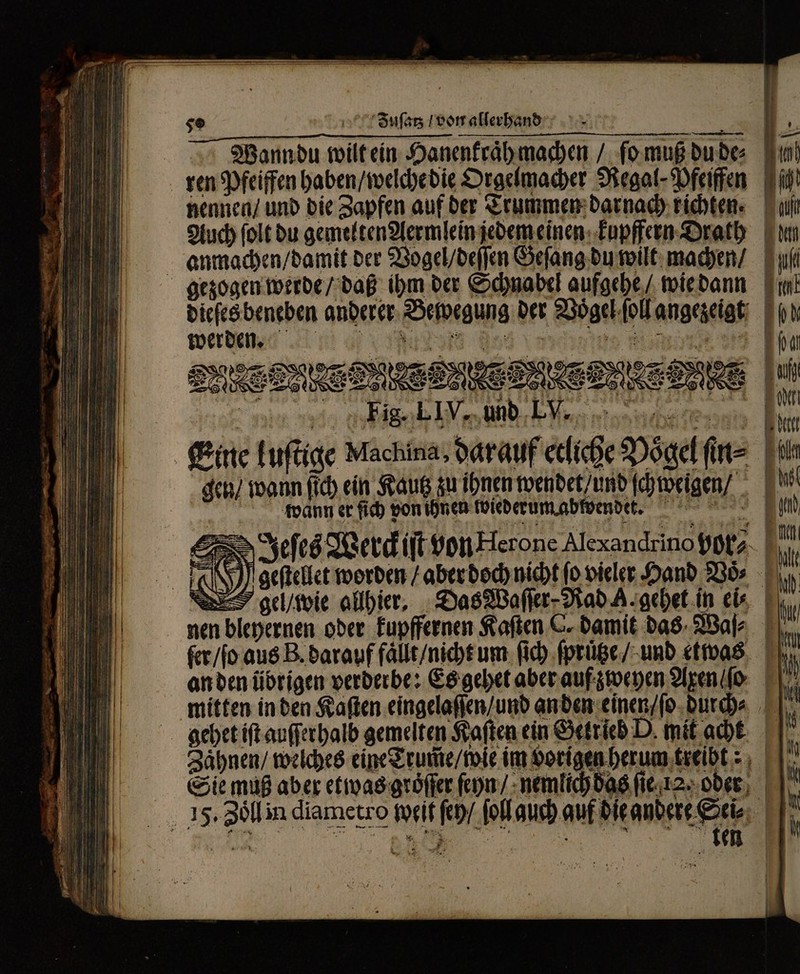 50 Zusatz / von allerhand
Wann du wilt ein Hanenkråh machen / so muß du de-
ren Pfeiffen haben / welche die Orgelmacher Regal-Pfeiffen
nennen / und die Zapfen auf der Trummen darnach richten.
Auch solt du gemelten Aermlein jedem einen kupffern Drath
anmachen / damit der Vogel / dessen Gesang du wilt machen /
gezogen werde / daß ihm der Schnabel aufgehe / wie dann
dieses beneben anderer Bewegung der Vögel soll angezeigt
werden.
Fig. LIV. und LV.
Eine lustige Machina, darauf etliche Vögel sin-
gen / wann sich ein Kautz zu ihnen wendet / und schweigen /
wann er sich von ihnen wiederum abwendet.
Dieses Werck ist von Herone Alexandrino vor-
gestellet worden / aber doch nicht so vieler Hand Vö-
gel / wie allhier. Das Wasser-Rad A. gehet in ei-
nen bleyernen oder kupffernen Kasten C. damit das Was-
ser / so aus B. darauf fällt / nicht um sich sprütze / und etwas
an den übrigen verderbe: Es gehet aber auf zweyen Axen / so
mitten in den Kasten eingelassen / und an den einen / so durch-
gehet ist ausserhalb gemelten Kasten ein Getrieb D. mit acht
Zähnen / welches eine Trum̃e / wie im vorigen herum treibt:
Sie muß aber etwas grösser seyn / nemlich das sie 12. oder
15. Zöll in diametro weit sey / soll auch auf die andere Sei-
ten